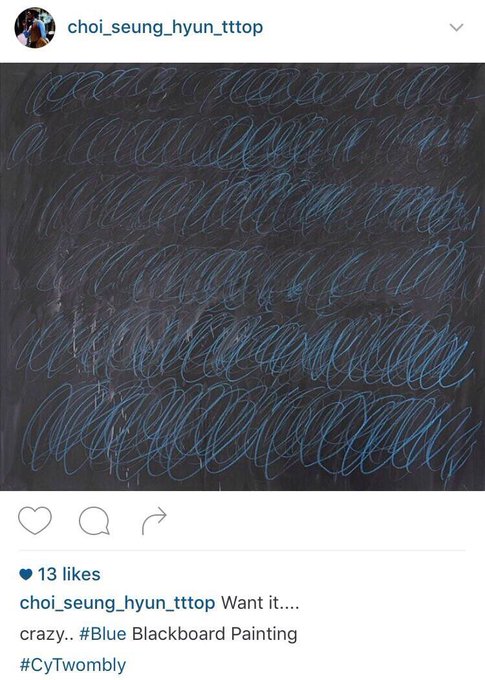 choi_seung_hyun_tttop
13 likes
choi_seung_hyun_tttop Want it....
crazy.. #Blue Blackboard Painting
#CyTwombly